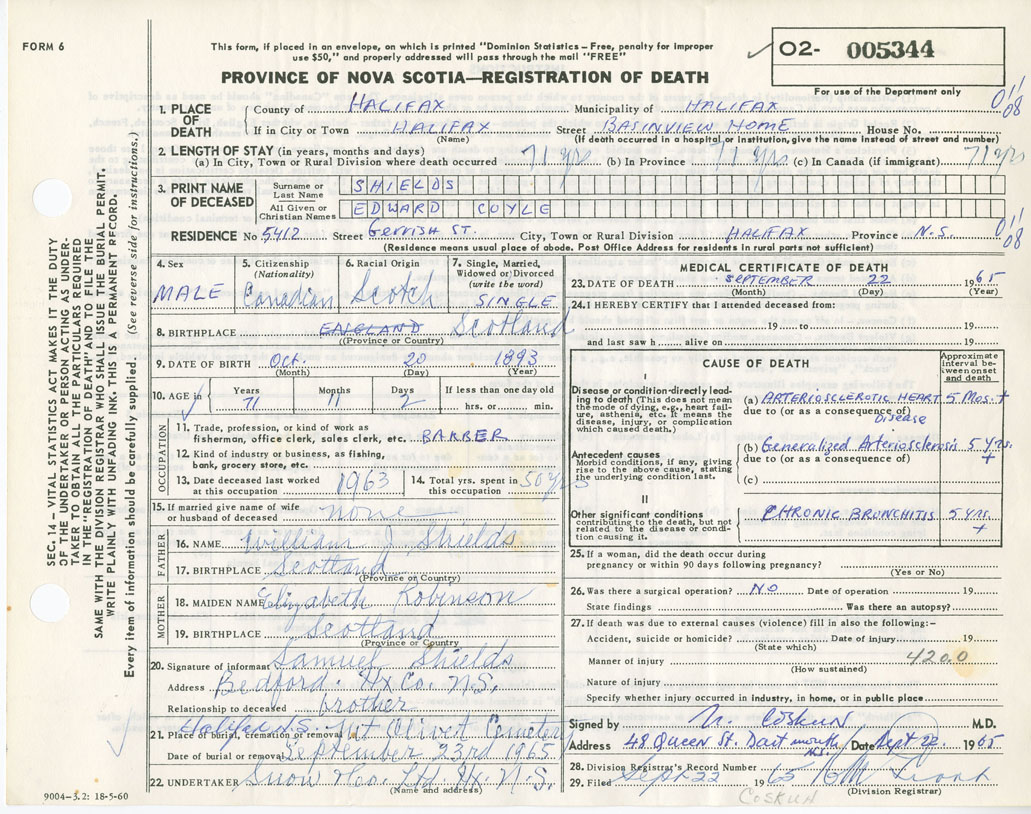 FORM 6
This form, if placed in an envelope, on which is printed "Dominion Statistics—Free, penalty for improper
use $50," and properly addressed will pass through the mail "FREE"
PROVINCE OF NOVA SCOTIA—REGISTRATION OF DEATH
O2- 005344
For use of the Department only
1. PLACE OF DEATH
County of HALIFAX Municipality of HALIFAX 01'
08
If in City or Town HALIFAX Street BASINVIEW HOME House No.
(Name) (If death occurred in a hospital or institution, give the name instead of street and number)
2. LENGTH OF STAY (in years, months and days)
(a) In City, Town or Rural Division where death occurred 71 yrs (b) In Province 71 yrs (c) In Canada (if immigrant) 71 yrs
3. PRINT NAME OF DECEASED
Surname or Last Name SHIELDS
All Given or Christian Names EDWARD COYLE
RESIDENCE No. 5412 Street Gerrish ST. City, Town or Rural Division HALIFAX Province N.S. 01'
08
(Residence means usual place of abode. Post Office Address for residents in rural parts not sufficient)
4. Sex
MALE
5. Citizenship
(Nationality)
Canadian
6. Racial Origin
Scotch
7. Single, Married,
Widowed or Divorced
(write the word)
SINGLE
8. BIRTHPLACE ENGLAND Scotland
(Province or Country)
9. DATE OF BIRTH Oct. 20 1893
(Month) (Day) (Year)
10. AGE in
Years Months Days If less than one day old
71 11 2 hrs. or min.
OCCUPATION
11. Trade, profession, or kind of work as
fisherman, office clerk, sales clerk, etc. BARBER
12. Kind of industry or business, as fishing,
bank, grocery store, etc.
13. Date deceased last worked
at this occupation 1963
14. Total yrs. spent in
this occupation 50 yrs
15. If married give name of wife
or husband of deceased none
FATHER
16. NAME William J. Shields
17. BIRTHPLACE Scotland
(Province or Country)
MOTHER
18. MAIDEN NAME Elizabeth Robinson
19. BIRTHPLACE Scotland
(Province or Country)
20. Signature of informant Samuel Shields
Address Bedford. Hx Co. N.S.
Relationship to deceased brother
21. Place of burial, cremation or removal Halifax N.S. Mt Olivet Cemetery
Date of burial or removal September 23rd 1965
22. UNDERTAKER Snow & Co. Ltd. Hx. N.S.
(Name and address)
MEDICAL CERTIFICATE OF DEATH
23. DATE OF DEATH SEPTEMBER 22 1965
(Month) (Day) (Year)
24. I HEREBY CERTIFY that I attended deceased from:
19 to 19
and last saw h alive on 19
CAUSE OF DEATH
Approximate
interval be-
tween onset
and death
I
Disease or condition directly lead-
ing to death (This does not mean
the mode of dying, e.g., heart fail-
ure, asthenia, etc. It means the
disease, injury, or complication
which caused death.)
(a) ARTERIOSCLEROTIC HEART 5 Mos. +
due to (or as a consequence of) Disease
Antecedent causes
Morbid conditions, if any, giving
rise to the above cause, stating
the underlying condition last.
(b) Generalized Arteriosclerosis 5 yrs. +
due to (or as a consequence of)
(c)
II
Other significant conditions
contributing to the death, but not
related to the disease or condi-
tion causing it.
CHRONIC BRONCHITIS 5 yrs. +
25. If a woman, did the death occur during
pregnancy or within 90 days following pregnancy?
(Yes or No)
26. Was there a surgical operation? NO Date of operation 19
State findings Was there an autopsy?
27. If death was due to external causes (violence) fill in also the following:—
Accident, suicide or homicide? Date of injury 19
(State which)
Manner of injury 420.0
(How sustained)
Nature of injury
Specify whether injury occurred in industry, in home, or in public place
Signed by N. COSKUN M.D.
Address 48 Queen St. Dartmouth N.S. Date Sept 22 1965
28. Division Registrar's Record Number
29. Filed Sept 22 1965
(Division Registrar)
COSKUN
SEC. 14—VITAL STATISTICS ACT MAKES IT THE DUTY
OF THE UNDERTAKER OR PERSON ACTING AS UNDER-
TAKER TO OBTAIN ALL THE PARTICULARS REQUIRED
IN THE "REGISTRATION OF DEATH" AND TO FILE THE
SAME WITH THE DIVISION REGISTRAR WHO SHALL ISSUE THE BURIAL PERMIT.
WRITE PLAINLY WITH UNFADING INK. THIS IS A PERMANENT RECORD.
Every item of information should be carefully supplied. (See reverse side for instructions.)
9004—3.2: 18-5-60